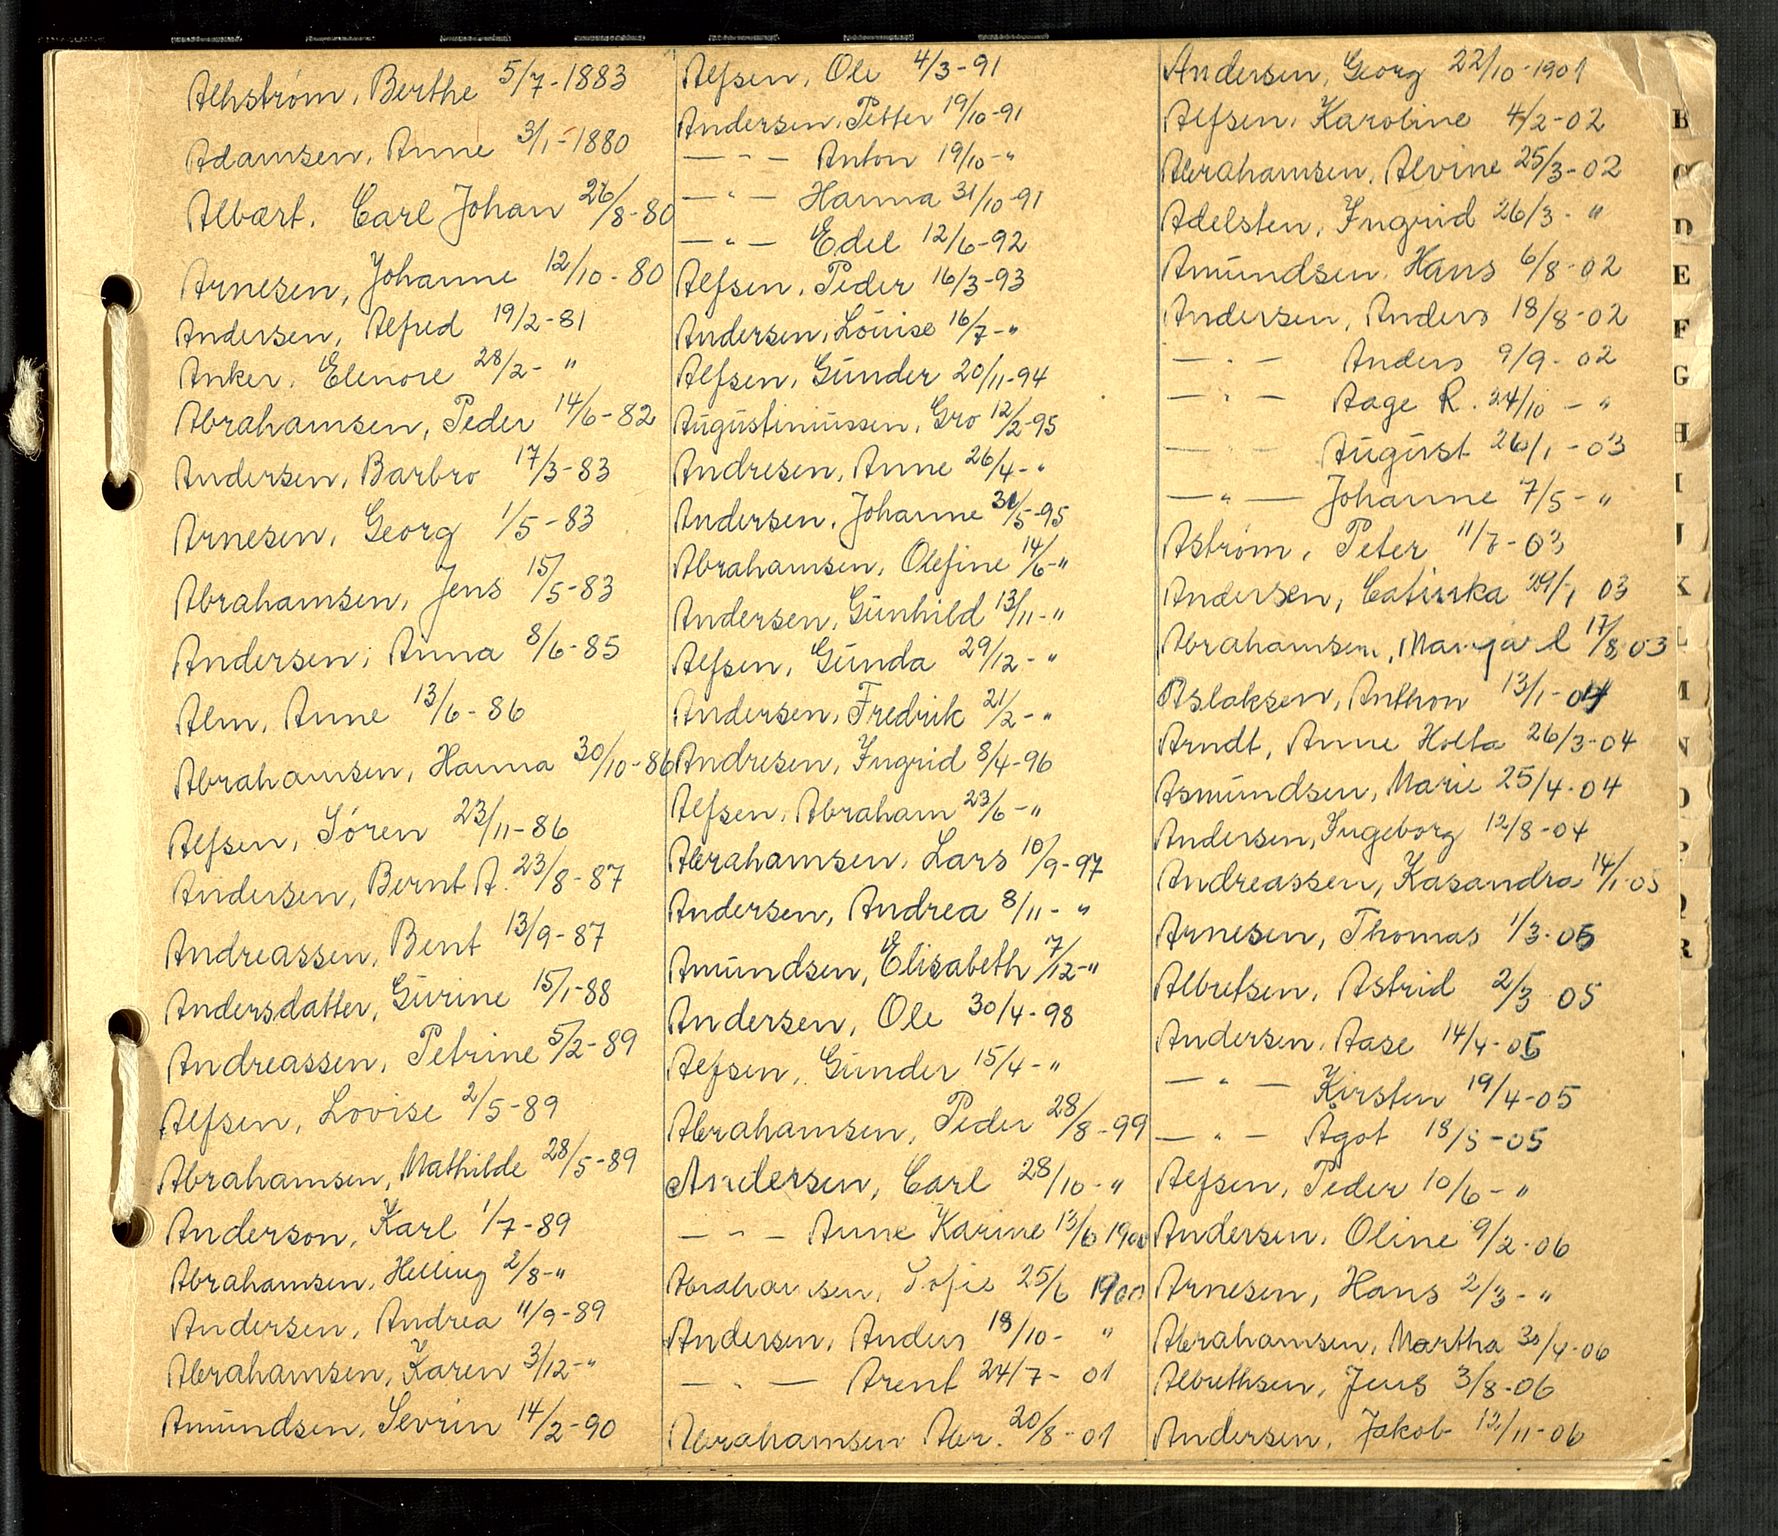 Ahlstrøm, Berthe 5/7-1883
Adamsen, Anne 3/1-1880
Albært. Carl Johan 26/8-80
Arnesen, Johanne 12/10-80
Andersen, Alfred 19/2-81
Anker, Elenore 28/2- "
Abrahamsen, Peder 14/6-82
Andersen, Barbro 17/3-83
Arnesen, Georg 1/5-83
Abrahamsen, Jens 15/5-83
Andersen, Anna 8/6-85
Alm, Anne 13/6-86
Abrahamsen, Hanna 30/10-86
Alfsen, Sören 23/11-86
Andersen, Bernt A. 23/8-87
Andreassen, Bent 13/9-87
Andersdatter, Gurine 15/1-88
Andreassen, Petrine 5/2-89
Alfsen, Lovise 2/5-89
Abrahamsen, Mathilde 28/5-89
Anderson, Karl 1/7-89
Abrahamsen, Helling 2/8-"
Andersen, Andrea 11/9-89
Abrahamsen, Karen 3/12-"
Amundsen, Sevrin 14/2-90
Alfsen, Ole 4/3-91
Andersen, Petter 19/10-91
— " — Anton 19/10-"
— " — Hanna 31/10-91
— " — Edel 12/6-92
Alfsen, Peder 16/3-93
Andersen, Louise 16/7-"
Alfsen, Gunder 20/11-94
Augustinussen, Gro 12/2-95
Andresen, Anne 26/4-"
Andersen, Johanne 31/5-95
Abrahamsen, Olefine 14/6-"
Andersen, Gunhild 13/11-"
Alfsen, Gunda 29/12-"
Andersen, Fredrik 21/2-"
Andresen, Ingrid 8/4-96
Alfsen, Abraham 23/6-"
Abrahamsen, Lars 10/9-97
Andersen, Andrea 8/11-"
Amundsen, Elisabeth 7/12-"
Andersen, Ole 30/4-98
Alfsen, Gunder 15/4-"
Abrahamsen, Peder 28/8-99
Andersen, Carl 28/10-"
— " — Anne Karine 13/6 1900
Abrahamsen, Sofie 25/6 1900
Andersen, Anders 18/10- "
— " — Arent 24/7-01
Abrahamsen Abr. 20/8-01
Andersen, Georg 22/10-1901
Alfsen, Karoline 4/2-02
Abrahamsen, Alvine 25/3-02
Adelsten, Ingrid 26/3-"
Amundsen, Hans 6/8-02
Andersen, Anders 18/8-02
— " — Anders 9/9-02
— " — Aage R. 24/10-"
— " — August 26/1-03
— " — Johanne 7/5-"
Astrøm, Peter 11/7-03
Andersen, Catinka 29/7 03
Abrahamsen, 17/8 03
Aslaksen, Anthon 13/1-04
Arndt, Anne Holta 26/3-04
Asmundsen, Marie 25/4-04
Andersen, Ingeborg 12/8-04
Andreassen, Kasandra 14/1-05
Arnesen, Thomas 1/3-05
Albretsen, Astrid 2/3 05
Andersen, Aase 14/4-05
— " — Kirsten 19/4-05
— " — Ågot 18/5-05
Alfsen, Peder 10/6-"
Andersen, Oline 9/2-06
Arnesen, Hans 2/3-"
Abrahamsen, Martha 30/4-06
Albrethsen, Jens 3/8-06
Andersen, Jakob 12/11-06
B
C
D
E
F
G
H
I
J
K
L
M
N
O
P
Q
R